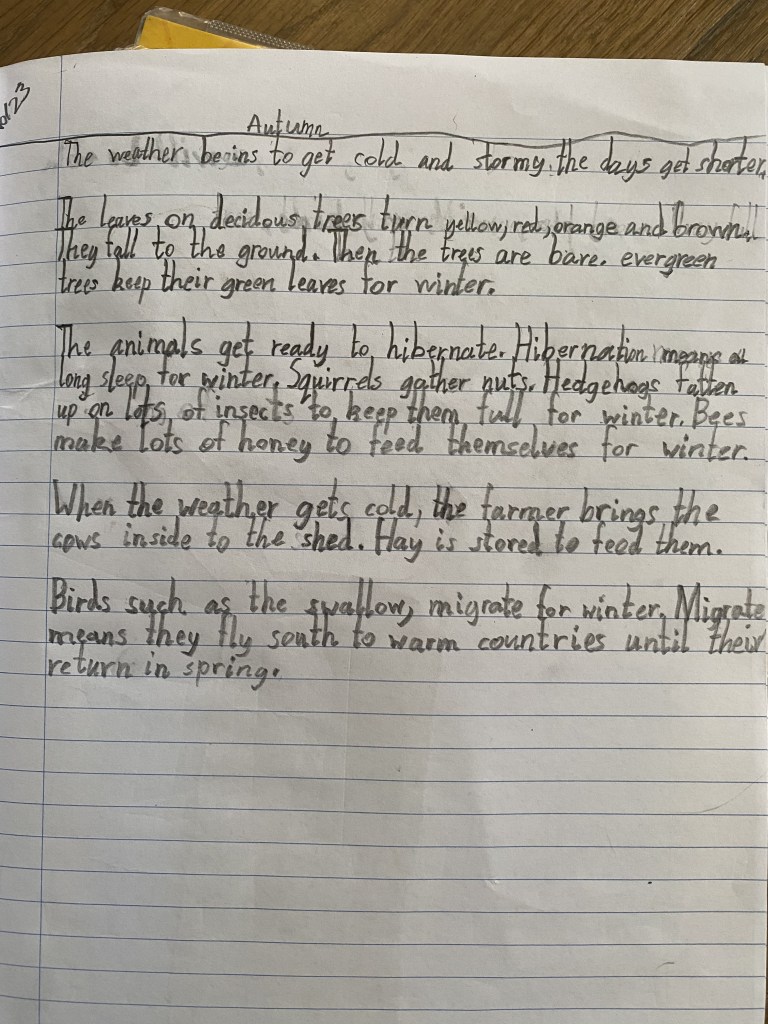 Autumn
The weather begins to get cold and stormy. the days get shorter,
The leaves on decidous trees turn yellow, red, orange and brown.
They fall to the ground. Then the trees are bare. evergreen
trees keep their green leaves for winter.
The animals get ready to hibernate. Hibernation means a
long sleep for winter. Squirrels gather nuts. Hedgehogs fatten
up on lots of insects to keep them full for winter. Bees
make lots of honey to feed themselves for winter.
When the weather gets cold, the farmer brings the
cows inside to the shed. Hay is stored to feed them.
Birds such as the swallow, migrate for winter. Migrate
means they fly south to warm countries until their
return in spring.